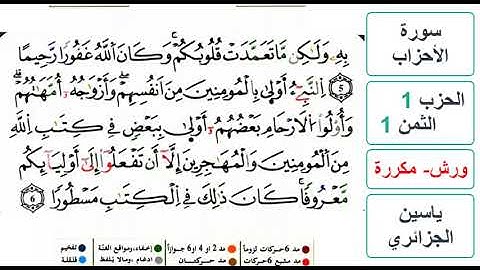 بِهِۦ وَلَٰكِن مَّا تَعَمَّدَتْ قُلُوبُكُمْۖ وَكَانَ اَ۬للَّهُ غَفُوراٗ رَّحِيماًۖ
5 اِ۬لنَّبِيٓءُ اَوْلَىٰ بِالْمُومِنِينَ مِنَ اَنفُسِهِمْۖ وَأَزْوَٰجُهُۥٓ أُمَّهَٰتُهُمْۖ
وَأُوْلُواْ اُ۬لْأَرْحَامِ بَعْضُهُمُۥٓ أَوْلَىٰ بِبَعْضٖ فِے كِتَٰبِ اِ۬للَّهِ
مِنَ اَ۬لْمُومِنِينَ وَالْمُهَٰجِرِينَ إِلَّآ أَن تَفْعَلُوٓاْ إِلَىٰٓ أَوْلِيَآئِكُم
مَّعْرُوفاٗۖ كَانَ ذَٰلِكَ فِے اِ۬لْكِتَٰبِ مَسْطُوراٗۖ 6
سورة
الأحزاب
الحزب 1
الثمن 1
ورش- مكررة
ياسين
الجزائري
مد 6 حركات لزوماً مد 2 أو 4 أو 6 جوازاً إخفاء، ومواقع الغنة تفخيم
مد مشبع 6 حركات مد حركتان إدغام، وما لا يلفظ قلقلة